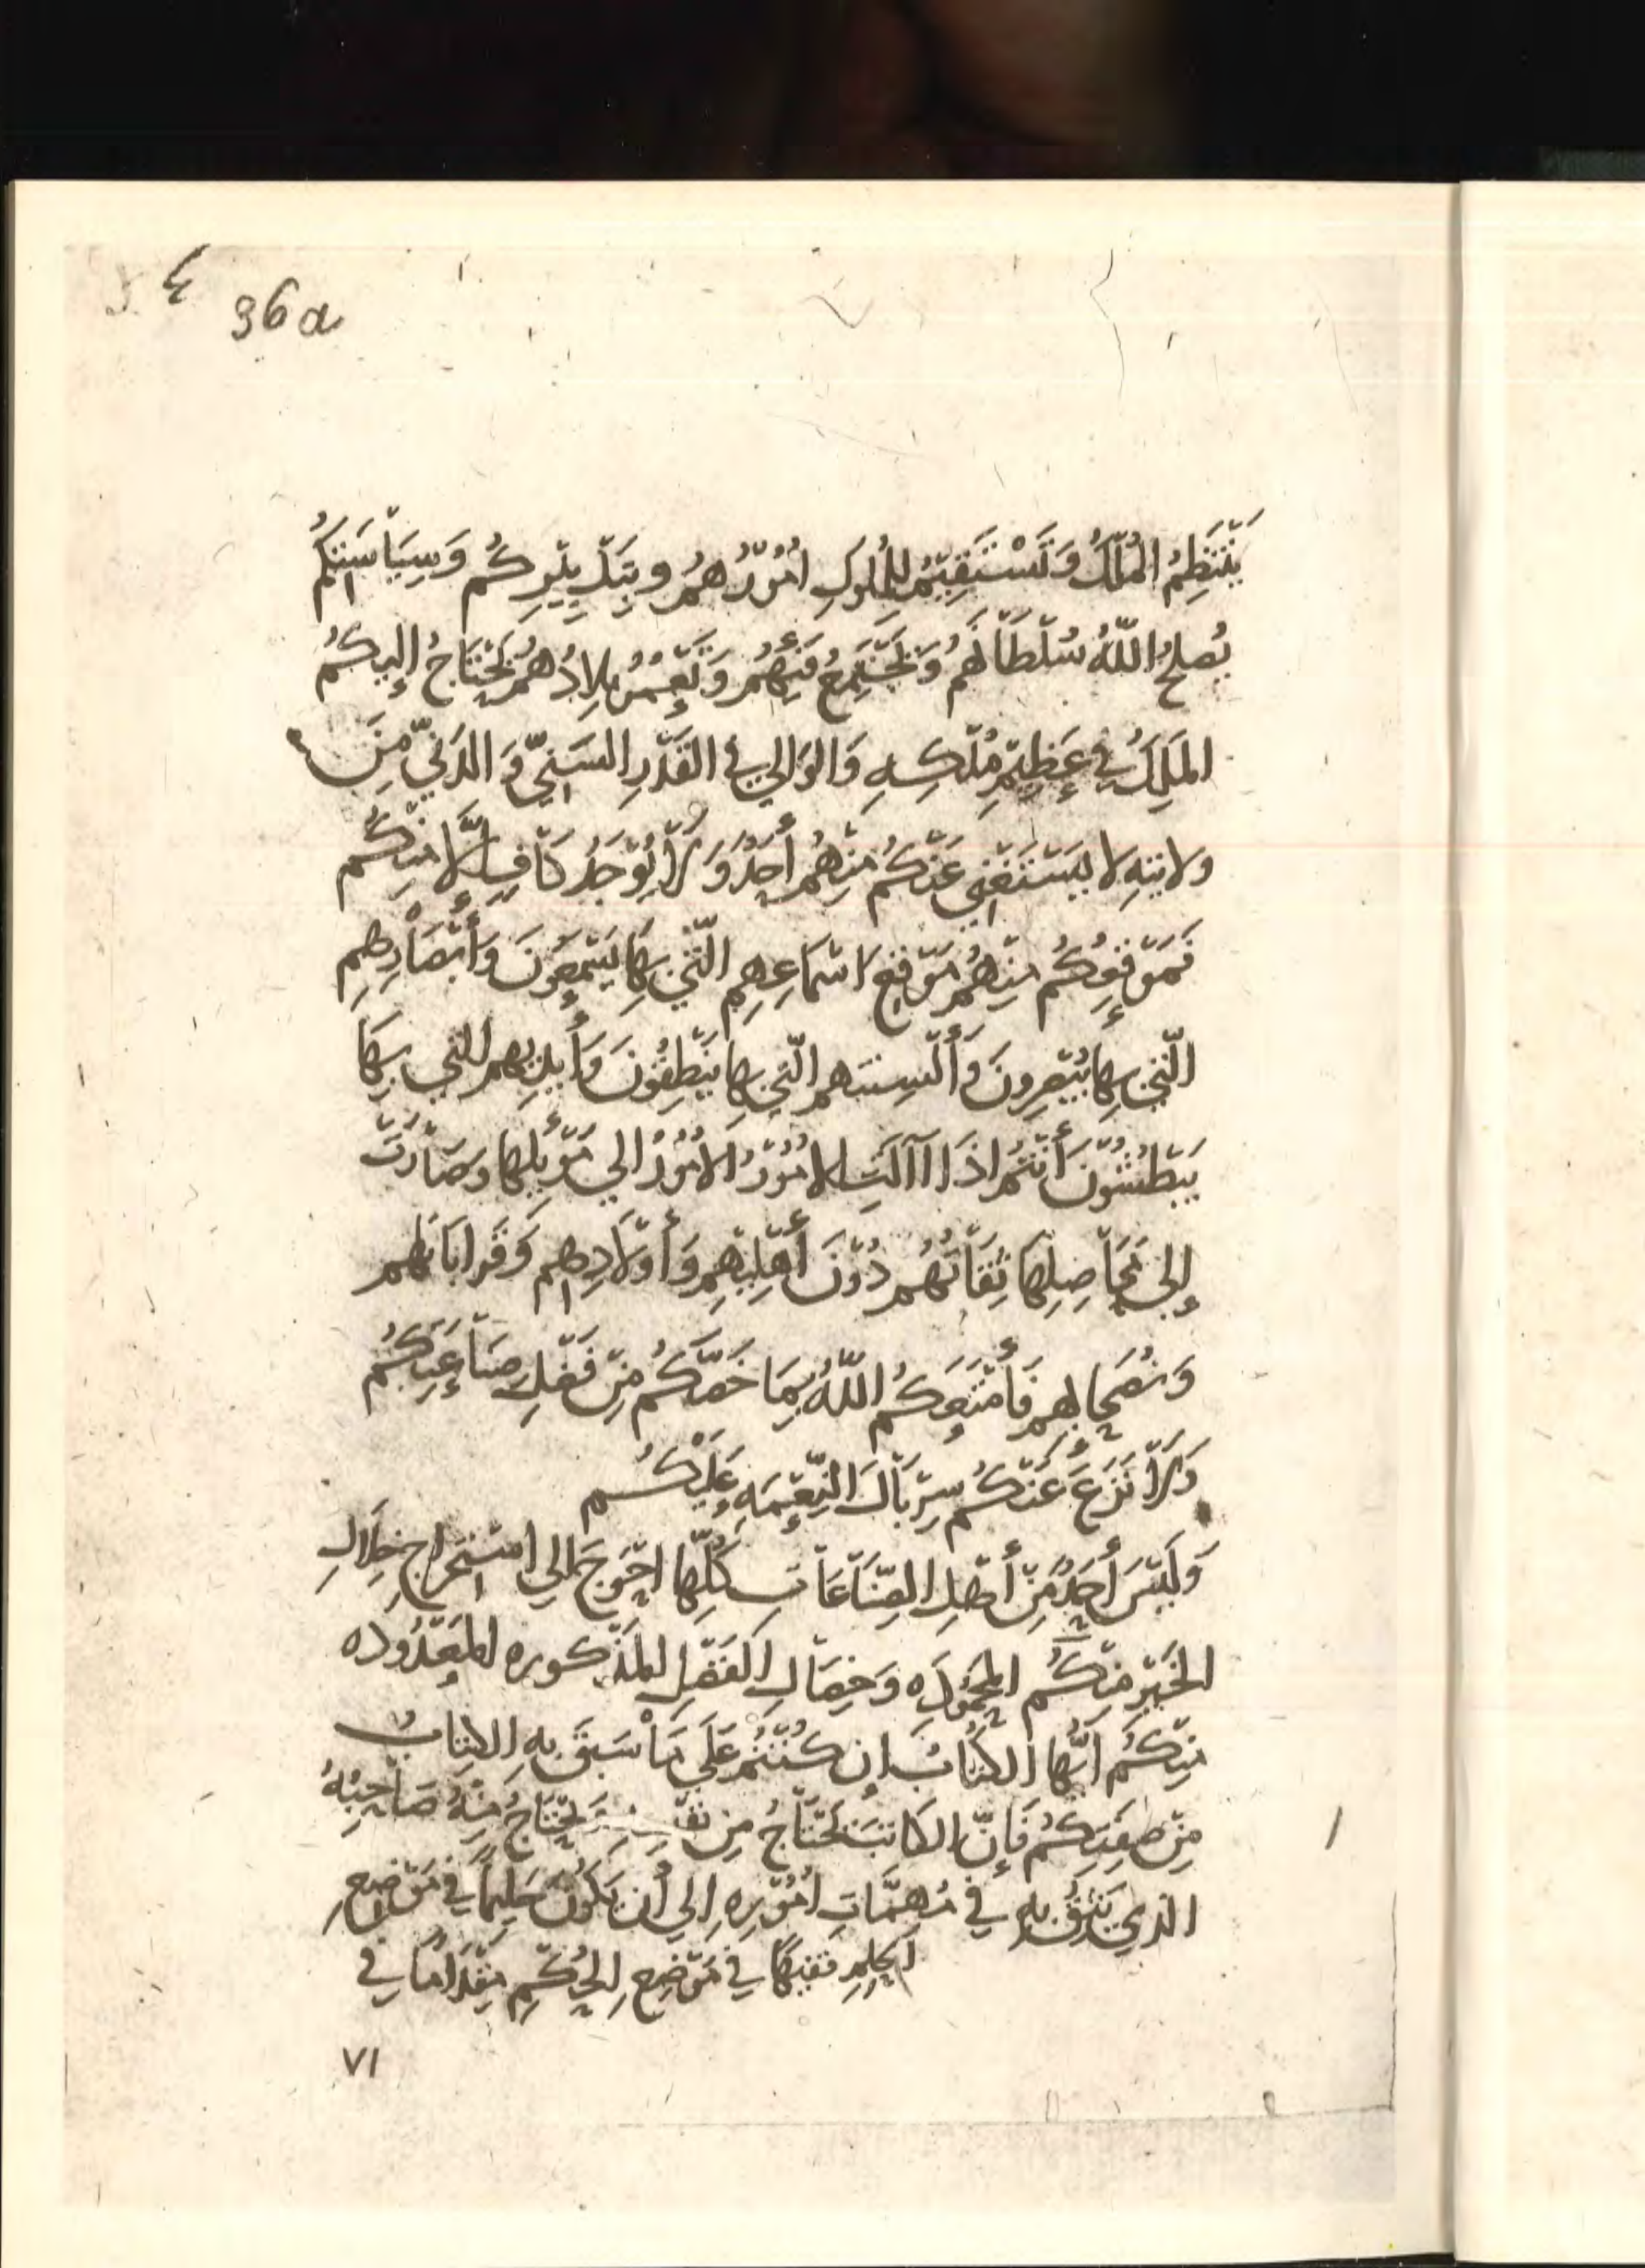 36a
يَنْتَظِمُ المُلْكُ وَتَسْتَقِيْمُ لِلْمُلُوكِ امُوْرُهُمُ وبِتَدْبِيْرِكُم وَسِيَاْسَتِكُم
يُصلحُ اللّهُ سُلْطَاْنَهُم وَيَجْتَمِعُ فَيئُهُم وَتَعْمُرُ بِلادُهُم يَحْتَاجُ إليكُم
المَلِكُ في عَظِيْمِ مُلْكِهِ وَالوَالي في القَدْرِ السَنِيِّ وَ الدَنيِّ مِنَ
ولايتهِ لا يَسْتَغْنِي عَنْكُم مِنْهُم أَحَدٌ وَلَاْ يُوْجَدُ كَاْفٍ إلَّا مِنْكُم
فَمَوْقِعُكُم مِنْهُم مَوْقِعَ اسْمَاعِهِم الّتي بِهَا يَسْمَعُونَ وَأبْصَاْرِهِم
الّتي بِها يُبْصِرونَ وَأَلْسِنتهم الّتي بِها يَنْطِقُونَ وَأَيديهم التي بِهَا
يَبْطُشُوْنَ أَنْتُم اذَا اآلَتِ الامُوْرُ الامُوْرُ الي مَوْئِلِها وصَاْرَتْ
إلى مَحَاْصِلِها ثِقَاْتُهُم دُوْنَ أَهْلِيْهِم وَأوْلَاْدِهِم وَقَراباتهم
وَنُصَحَايهم فَأَمْتَعَكُم اللّهُ بِمَا خَصَّكُم مِنْ فَضْلِ صِنَاْعَتِكُم
وَلَاْ نَزَعَ عَنْكُم سِرْبَاْلَ النِّعْمَهِ عَلَيْكُم
وَلَيْسَ أَحَدٌ مِنْ أَهْلِ الصِّنَاْعَاْتِ كُلِّها احْوَجَ الي استخراج خِلَالِ
الخَيْرِ مِنْكُم المحْمُودَه وَخِصَالِ الفَضْلِ المَذْكوره المَعْدُوده
مِنْكُم أَيُّها الكُتَّابُ ان كُنْتُمْ عَلَي مَاْ سَبَقَ بِهِ الكِتِابُ
مِنْ صِفَتِكُم فَإنَّ الكَاتبَ يَحْتَاْجُ مِن نَفْسِهِ وَيَحْتَاجُ مِنْهُ صَاْحِبُهُ
الذي يَثِقُ بِهِ في مُهِمَّاتِ امُوْرِهِ الي أن يَكُوْنَ حَلِيْماً في مَوْضِعِ
الحِلْمِ فقيهًا في مَوْضِعِ الحُكْمِ مِقْدَامًا في
٧١